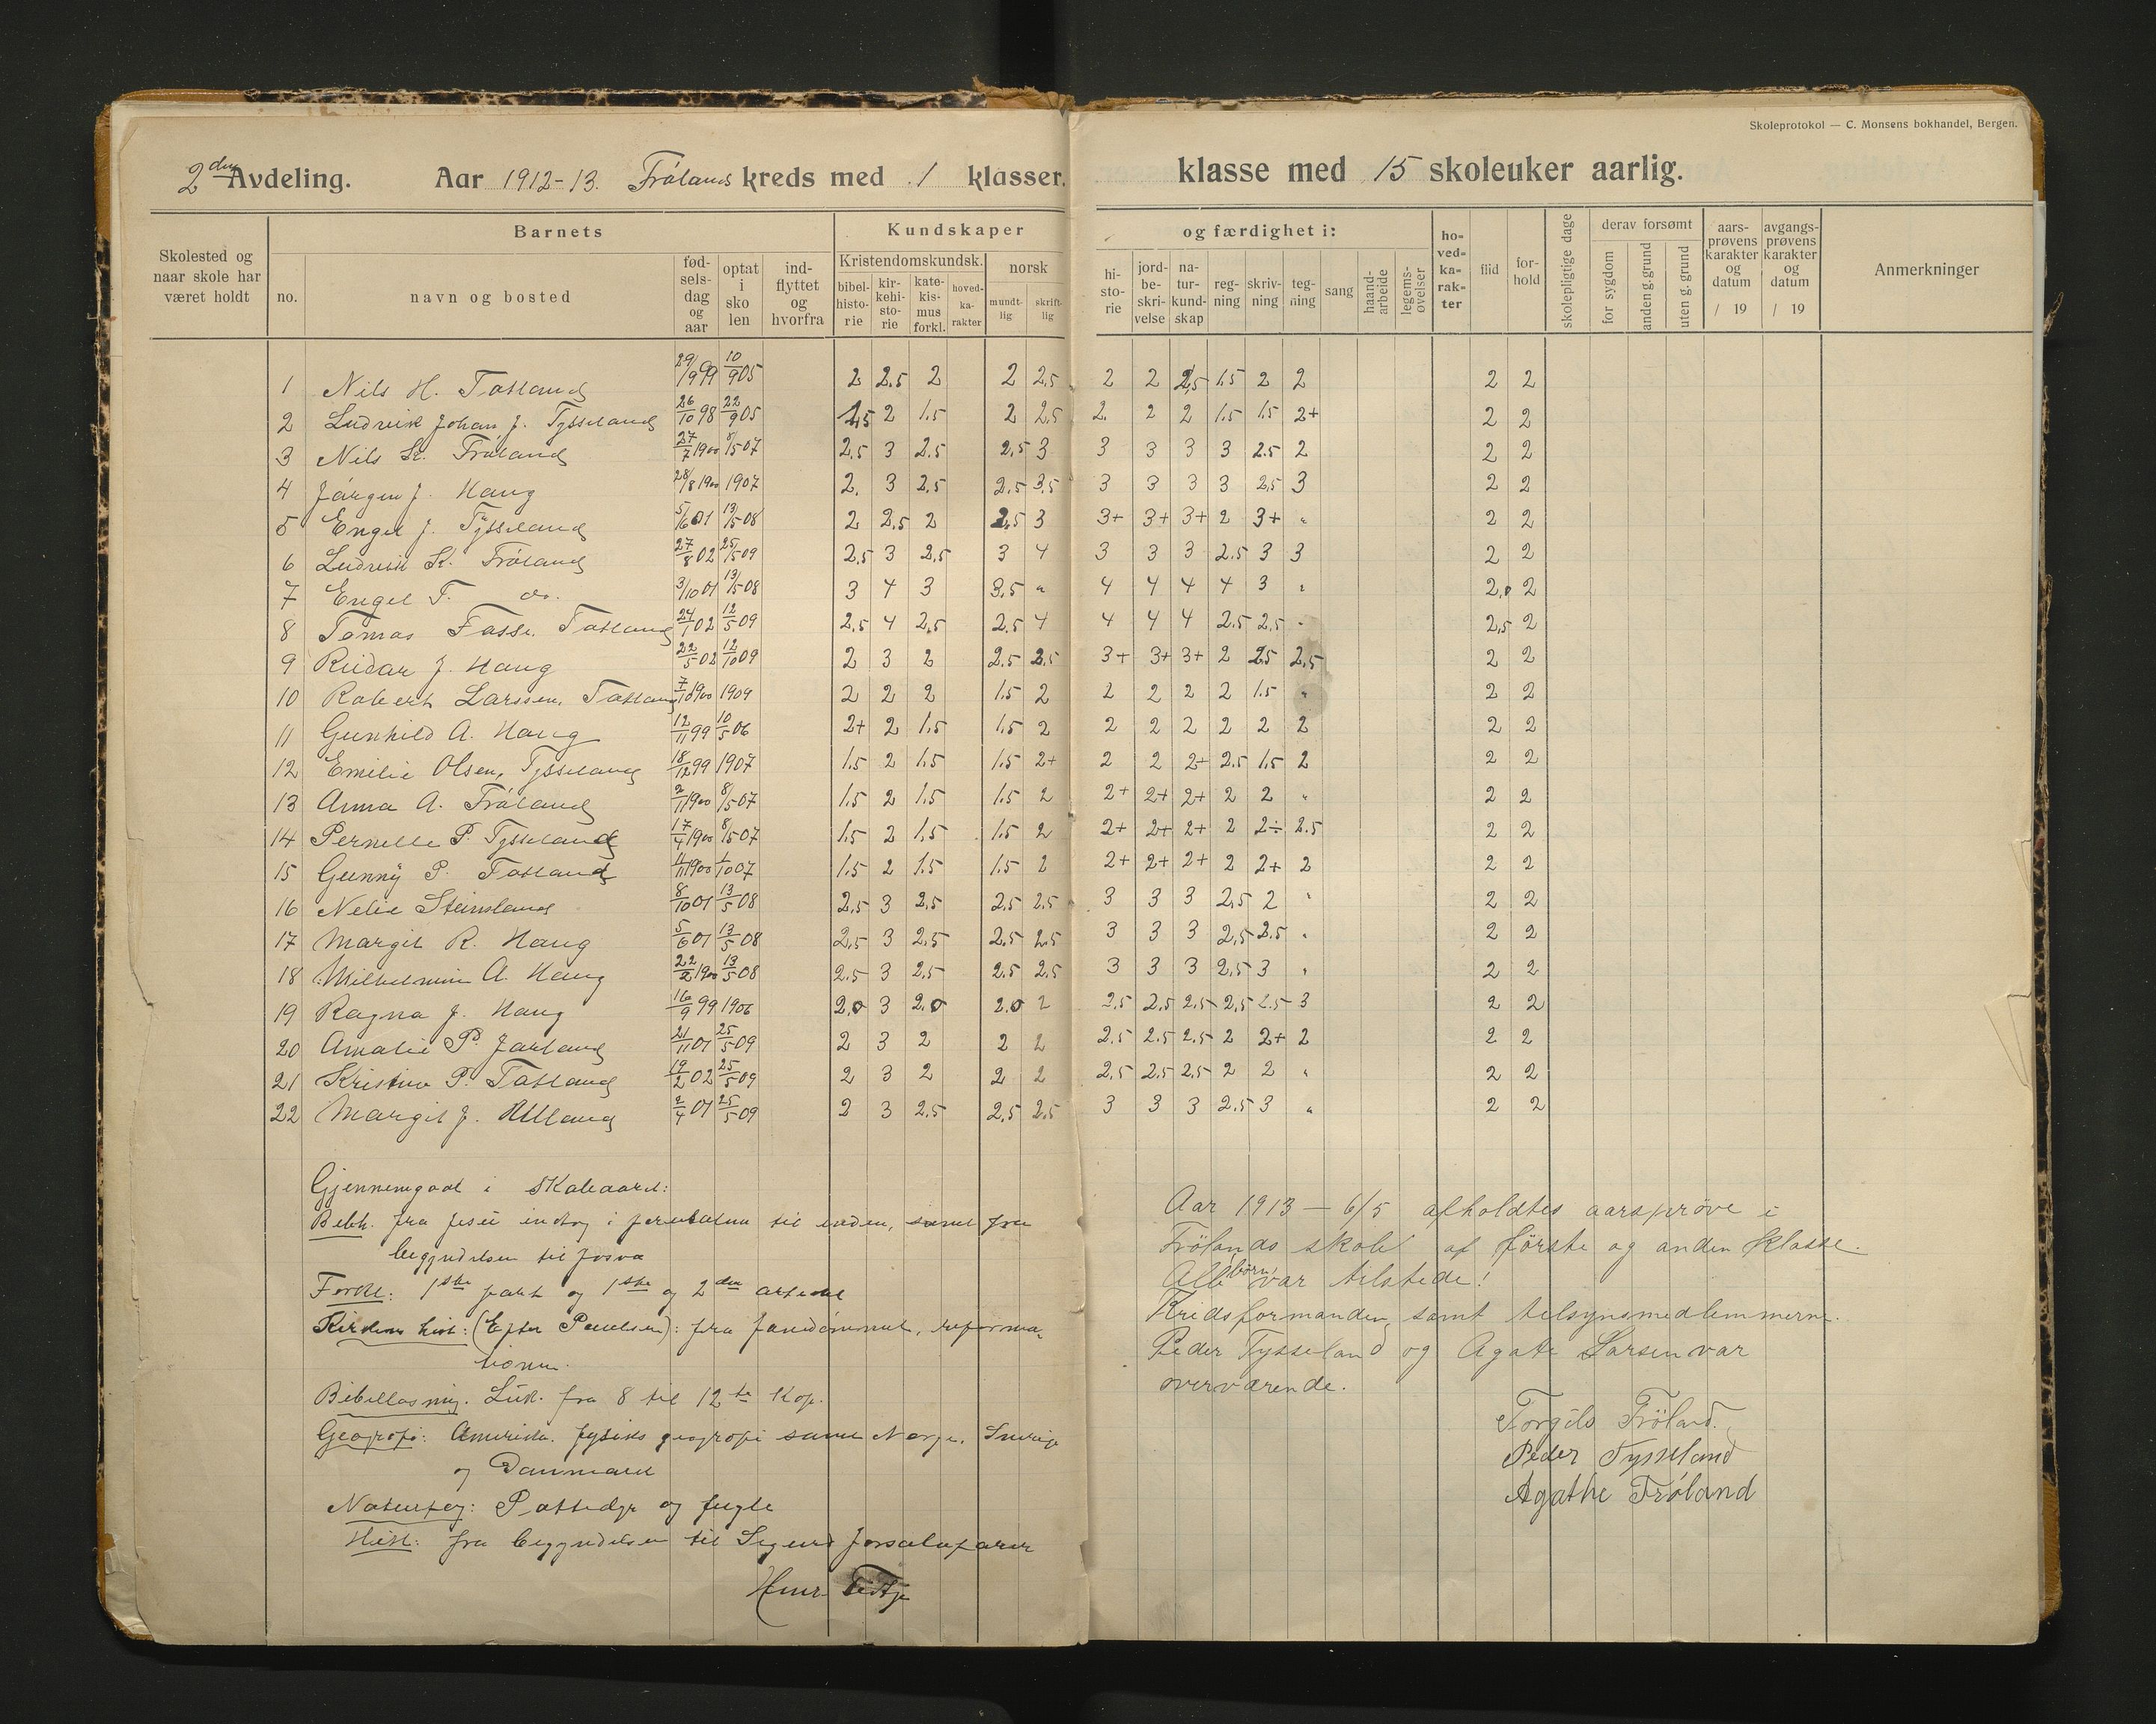 Skoleprotokol — C. Monsens bokhandel, Bergen.
2den Avdeling. Aar 1912-13. Frölands kreds med 1 klasser. klasse med 15 skoleuker aarlig.
Skolested og naar skole har været holdt
Barnets
no. navn og bosted fødselsdag og aar optat i skolen indflyttet og hvorfra
Kundskaper og færdighet i:
Kristendomskundsk. norsk
bibelhistorie kirkehistorie katekismus forkl. hovedkarakter mundtlig skriftlig
historie jordbeskrivelse naturkundskap regning skrivning tegning sang haandarbeide legemsøvelser
hovedkarakter flid forhold skolepligtige dage derav forsømt for sygdom anden g. grund uten g. grund
aarsprøvens karakter og datum / 19 avgangsprøvens karakter og datum / 19 Anmerkninger
1 Nils H. Tatland 29/9 99 10/9 05 2 2.5 2 2 2.5 2 2 2,5 1.5 2 2 2 2
2 Ludvik Johan J. Tysseland 26/10 98 22/9 05 1,5 2 1.5 2 2.5 2. 2 2 1.5 1.5 2+ 2 2
3 Nils K. Fröland 27/7 1900 8/5 07 2.5 3 2.5 2.5 3 3 3 3 3 2.5 2 2 2
4 Jörgen J. Haug 28/8 1900 1907 2. 3 2.5 2.5 3.5 3 3 3 3 2.5 3 2 2
5 Engel J. Tysseland 5/6 01 13/5 08 2 2.5 2 2.5 3 3+ 3+ 3+ 2 3+ " 2 2
6 Ludvik K. Fröland 27/8 02 25/5 09 2,5 3 2,5 3 4 3 3 3 2.5 3 3 2 2
7 Engel T. do. 3/10 01 13/5 08 3 4 3 3,5 " 4 4 4 4 3 " 2,0 2
8 Tomas Tasse. Tatland 24/1 02 12/5 09 2.5 4 2,5 2.5 4 4 4 4 2.5 2.5 - 2,5 2
9 Reidar J. Haug 22/5 02 12/10 09 2 3 2 2.5 2.5 3+ 3+ 3+ 2 2.5 2.5 2 2
10 Robert Larssen, Tatland 7/10 1900 1909 2 2 2 1.5 2 2 2 2 2 1.5 " 2 2
11 Gunhild A. Haug 12/11 99 10/5 06 2+ 2 1.5 1.5 2 2 2 2 2 2 2 2 2
12 Emilie Olsen, Tysseland 18/12 99 1907 1.5 2 1.5 1.5 2+ 2 2 2+ 2.5 1.5 2 2 2
13 Anna A. Fröland 2/11 1900 8/5 07 1.5 2 1.5 1.5 2 2+ 2+ 2+ 2 2 " 2 2
14 Pernelle P. Tysseland 17/4 1900 8/5 07 1.5 2 1.5 1.5 2 2+ 2+ 2+ 2 2÷ 2.5 2 2
15 Gunny P. Tatland 4/11 1900 1/10 07 1.5 2 1.5 1.5 2 2+ 2+ 2+ 2 2+ 2 2 2
16 Nelie Steinsland 8/10 01 13/5 08 2.5 3 2.5 2.5 2.5 3 3 3 2.5 2 " 2 2
17 Margit R. Haug 5/6 01 13/5 08 2.5 3 2.5 2.5 2.5 3 3 3 2,5 2.5 " 2 2
18 Milhelmine A. Haug 22/2 1900 13/5 08 2.5 3 2.5 2.5 2.5 3 3 3 2.5 3 " 2 2
19 Ragna J. Haug 16/9 99 1906 2.0 3 2.0 2.0 2 2.5 2.5 2.5 2,5 2.5 3 2 2
20 Amalie P. Jarland 21/11 01 25/5 09 2 3 2 2 2 2.5 2.5 2.5 2 2+ 2 2 2
21 Kristine P. Tatland 19/2 02 25/5 09 2 3 2 2 2 2,5 2.5 2.5 2 2 " 2 2
22 Margit J. Utland 2/4 01 25/5 09 2 3 2.5 2.5 2.5 3 3 3 2.5 3 " 2 2
Gjennemgaat i Skoleaaret:
Bibh. fra Jesu indtog i Jerusalem til enden, samt fra
begyndelsen til Josva
Forkl: 1ste part og 1ste og 2den artikel
Kirkens hist: (Efter Poulsen): fra Jandömmet, reforma-
tionen.
Bibellæsning. Luk. fra 8 til 12te Kap.
Geografi: Amerika. fysisk geografi samt Norge, Sverige
og Danmark
Naturfag: Pattedyr og fugle
Hist: fra begyndelsen til Sigurd Jorsalafarer
Henr. Tistje
Aar 1913 — 6/5 afholdtes aarsprøve i
Frölands skole af første og anden klasse.
Alle børn var tilstede!
Kredsformanden, samt tilsynsmedlemmerne.
Peder Tysseland og Agate Larsen var
overværende.
Torgils Fröland.
Peder Tysseland
Agathe Fröland